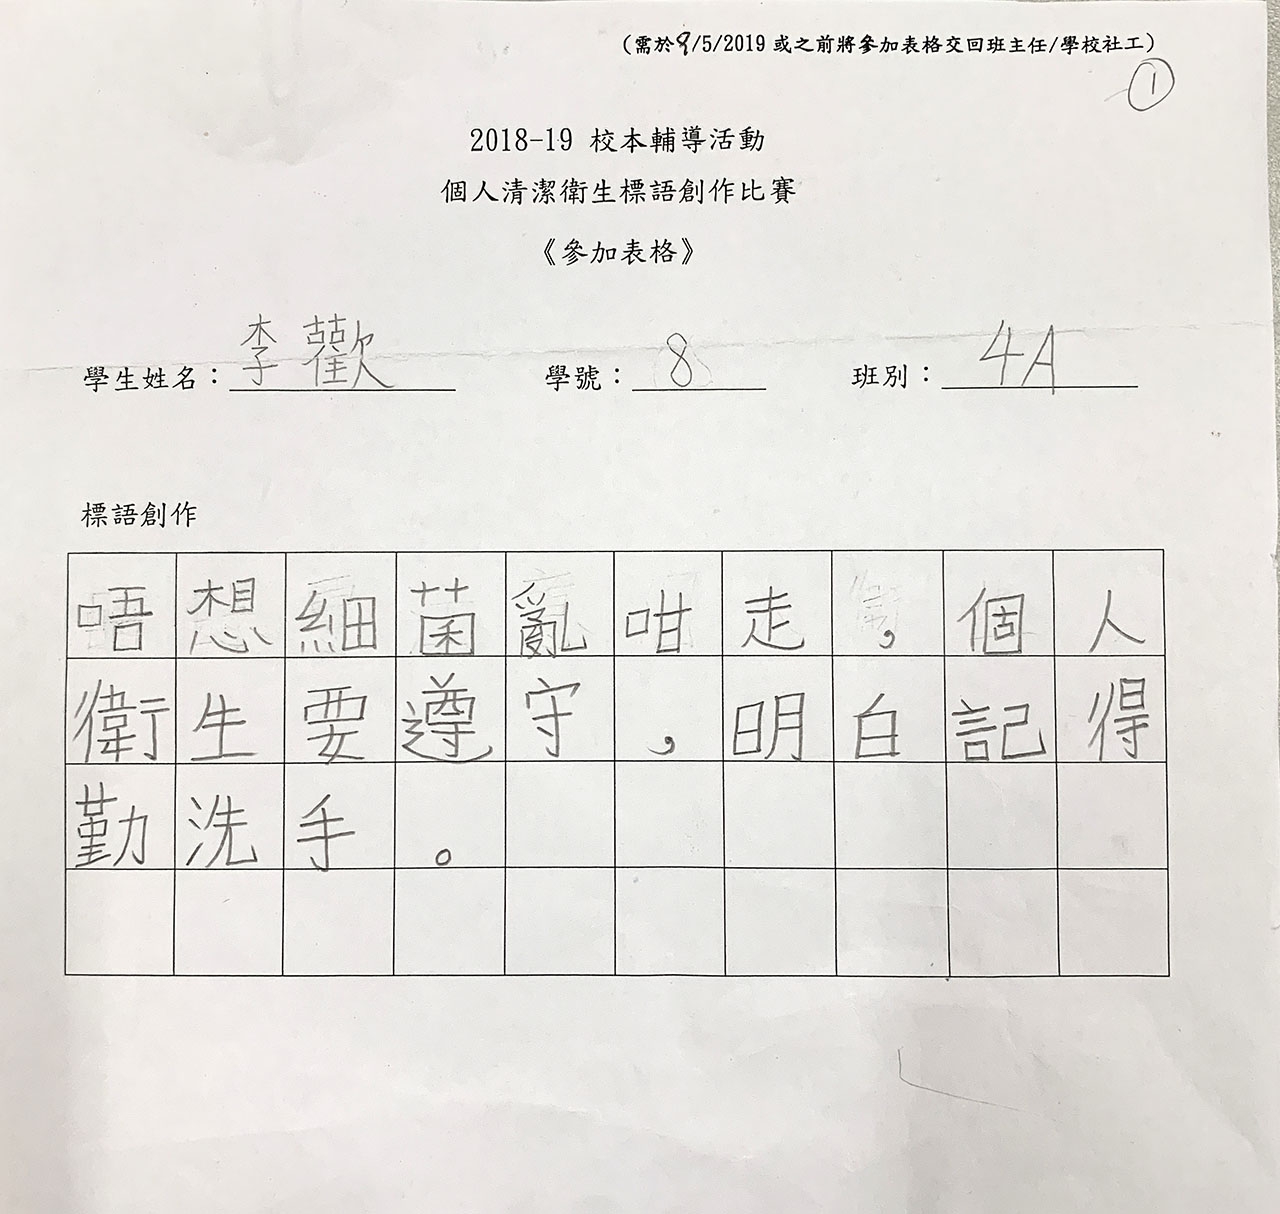 （需於9/5/2019或之前將參加表格交回班主任/學校社工）
1
2018-19 校本輔導活動
個人清潔衛生標語創作比賽
《參加表格》
學生姓名：李歡 學號：8 班別：4A
標語創作
唔想細菌亂咁走，個人
衛生要遵守，明白記得
勤洗手。